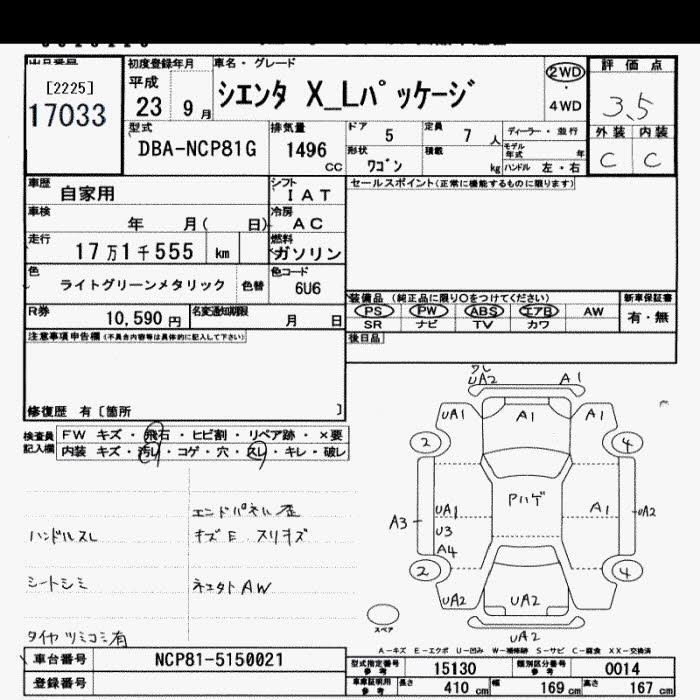 [2225]
17033
初度登録年月
平成
23 9月
車名・グレード
シエンタ X_Lパッケージ
2WD
・
4WD
評価点
3.5
外装 内装
C C
型式
DBA-NCP81G
排気量
1496
CC
ドア 5
定員 7 人
形状 ワゴン
積載 kg
ディーラー・並行
モデル年式 年
ハンドル 左・右
車歴
自家用
シフト
IAT
セールスポイント(正常に機能するものに限ります)
車検
年 月( 日)
冷房
AC
走行
17万1千555 km
燃料
ガソリン
色
ライトグリーンメタリック
色替
色コード
6U6
装備品 (純正品に限り○をつけてください)
新車保証書
PS PW ABS エアB AW
有・無
SR ナビ TV カワ
R券
10,590円
名変通知期限
月 日
後日品
注意事項申告欄(不具合内容等は具体的に記入して下さい)
修復歴 有〔箇所 〕
検査員
記入欄
FW キズ・飛石・ヒビ割・リペア跡・×要
内装 キズ・汚レ・コゲ・穴・スレ・キレ・破レ
ワレ
UA2 A1
UA1 A1 A1
2 4
Pハゲ
A3 UA1 A1 UA2
U3
A4
2 4
UA2 UA2
UA2
スペア
エンドパネル歪
ハンドルスレ
キズE スリキズ
シートシミ
タイヤツミコミ有
A-キズ E-エクボ U-凹み W-補修跡 S-サビ C-腐食 XX-交換済
車台番号 NCP81-5150021
登録番号
型式指定番号
参考
15130
類別区分番号
参考
0014
車庫証明用
参考
長さ 410 cm
幅 169 cm
高さ 167 cm